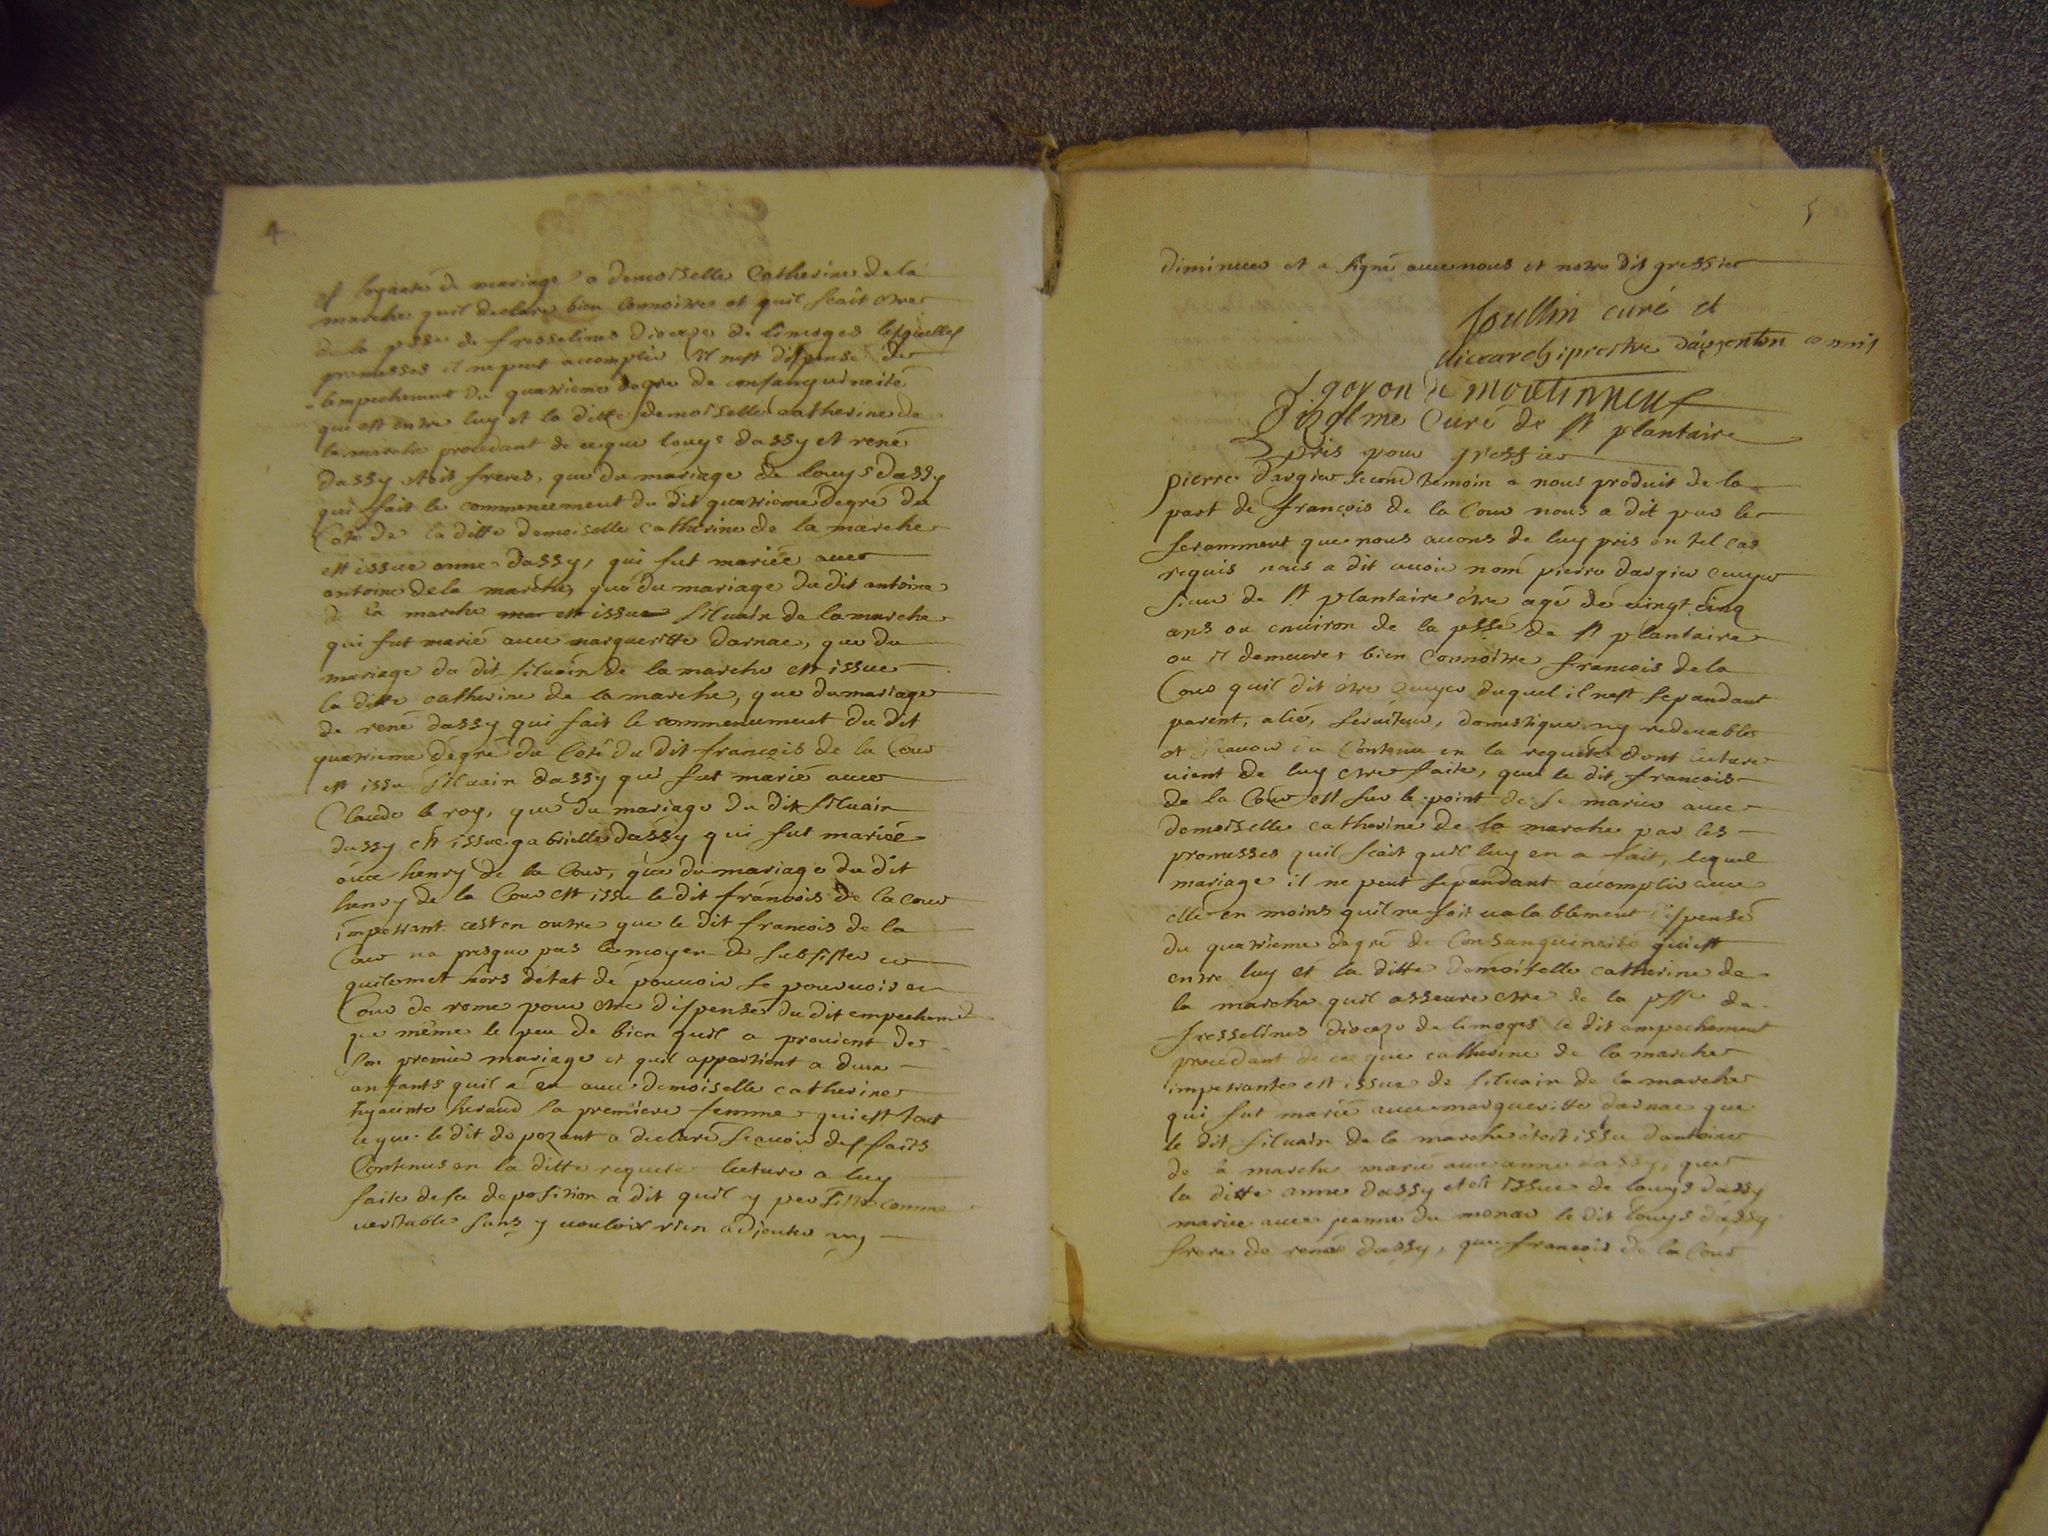 4
et loyauté de mariage a demoiselle Catherine de la
marche quil declare bien connoitre et quil scait etre
de la psse de fresselines diocese de limoges lesquelles
promesses il ne peut accomplir sil nest dispensé de
lempechement du quatrieme degre de consanguineité
qui est entre luy et la ditte demoiselle catherine de
la marche procedant de ce que louys dassy et rené
dassy etois freres, que du mariage de louys dassy
qui fait le commencement du dit quatrieme degré du
Coté de la ditte demoiselle catherine de la marche
est issue anne dassy, qui fut mariée avec
antoine de la marche, que du mariage du dit antoine
de la marche mar est issue silvain de la marche
qui fut marié avec margueritte darnac, que du
mariage du dit silvain de la marche est issue
la ditte catherine de la marche, que du mariage
de rené dassy qui fait le commencement du dit
quatrieme degré du Coté du dit françois de la Cour
est issu silvain dassy qui fut marié avec
Claude le roy, que du mariage du dit silvain
dassy est issue gabrielle dassy qui fut mariée
avec henry de la Cour, que du mariage du dit
henry de la Cour est issu le dit françois de la cour
impetrant cest en outre que le dit francois de la
Cour na presque pas le moyen de subsister ce
quile met hors detat de pouvoir se pourvoir en
Cour de rome pour etre dispensé du dit empechemt
que même le peu de bien quil a provient de
son premier mariage et quil appartient a deux
anfants quil a eu avec demoiselle catherine
hyacinte heraud sa premiere femme qui est tout
ce que le dit depozant a declaré scavoir des faits
Contenus en la ditte requete lecture a luy
faite de sa deposition a dit quil y persiste comme
veritable sans y vouloir rien adjouter ny
5
diminuer et a signé avec nous et notre dit greffier
poullin curé et
vicearchiprestre dargenton commis
goyon de moulinneuf
curé de st plantaire
pris pour greffier
pierre dargier second temoin a nous produit de la
part de françois de la Cour nous a dit par le
seramment que nous avons de luy pris en tel cas
requis nous a dit avoir nom pierre dargier ecuyer
sieur de st plantaire être agé de vingt cinq
ans ou environ de la psse de st plantaire
ou il demeure, bien connoitre francois de la
Cour quil dit être Ecuyer duquel il nest sepandant
parent, alié, serviteur, domestique ny redevable
et scavoir du Contenu en la requete dont lecture
vient de luy etre faite, que le dit francois
de la Cour est sur le point de se marier avec
demoiselle catherine de la marche par les
promesses quil scait quil luy en a fait, lequel
mariage il ne peut sepandant accomplir avec
elle en moins quil ne soit valablement dispensé
du quatrieme degré de Consanguineité qui est
entre luy et la ditte demoiselle catherine de
la marche quil asseure etre de la psse de
fresselines diocese de limoges le dit ampechement
procédant de ce que catherine de la marche
impetrante est issue de silvain de la marche
qui fut marié avec margueritte darnac que
le dit silvain de la marche étoit issu dantoine
de la marche marié avec anne dassy, que
la ditte anne dassy etoit issue de louys dassy
mariée avec jeanne du monar le dit louys dassy
frere de rené dassy, que françois de la Cour